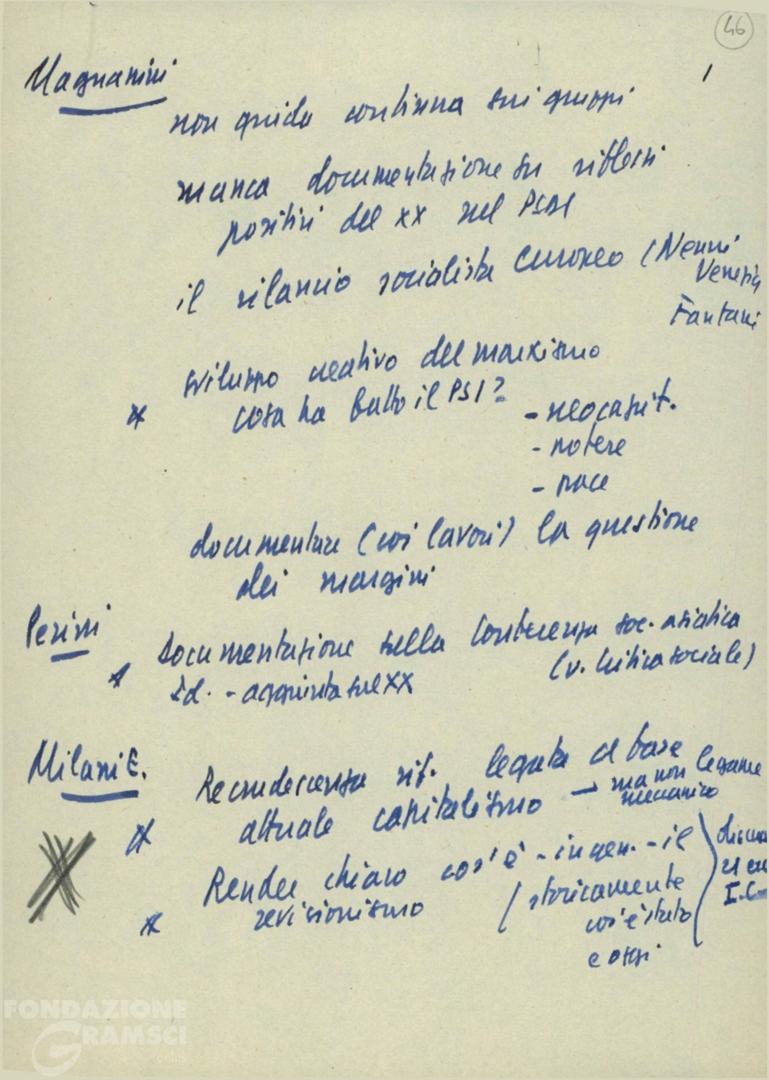 46
1
Magnanini
non guida continua sui gruppi
manca documentazione su riflessi
positivi del XX nel PSDI
il rilancio socialista europeo (Nenni
Venezia
Fanfani
sviluppo creativo del marxismo
* cosa ha fatto il PSI?
- neocapit.
- potere
- pace
documentare (coi lavori) la questione
dei margini
Perini
Documentazione sulla Conferenza soc. asiatica
* Id. - aggiunta sul XX (v. Critica sociale)
Milani E.
Recrudescenza rif. legata a base
* attuale capitalismo → ma non legame
meccanico
Render chiaro cos'è - in gen. - il
* revisionismo ( storicamente
cos'è stato
e oggi
FONDAZIONE
GRAMSCI